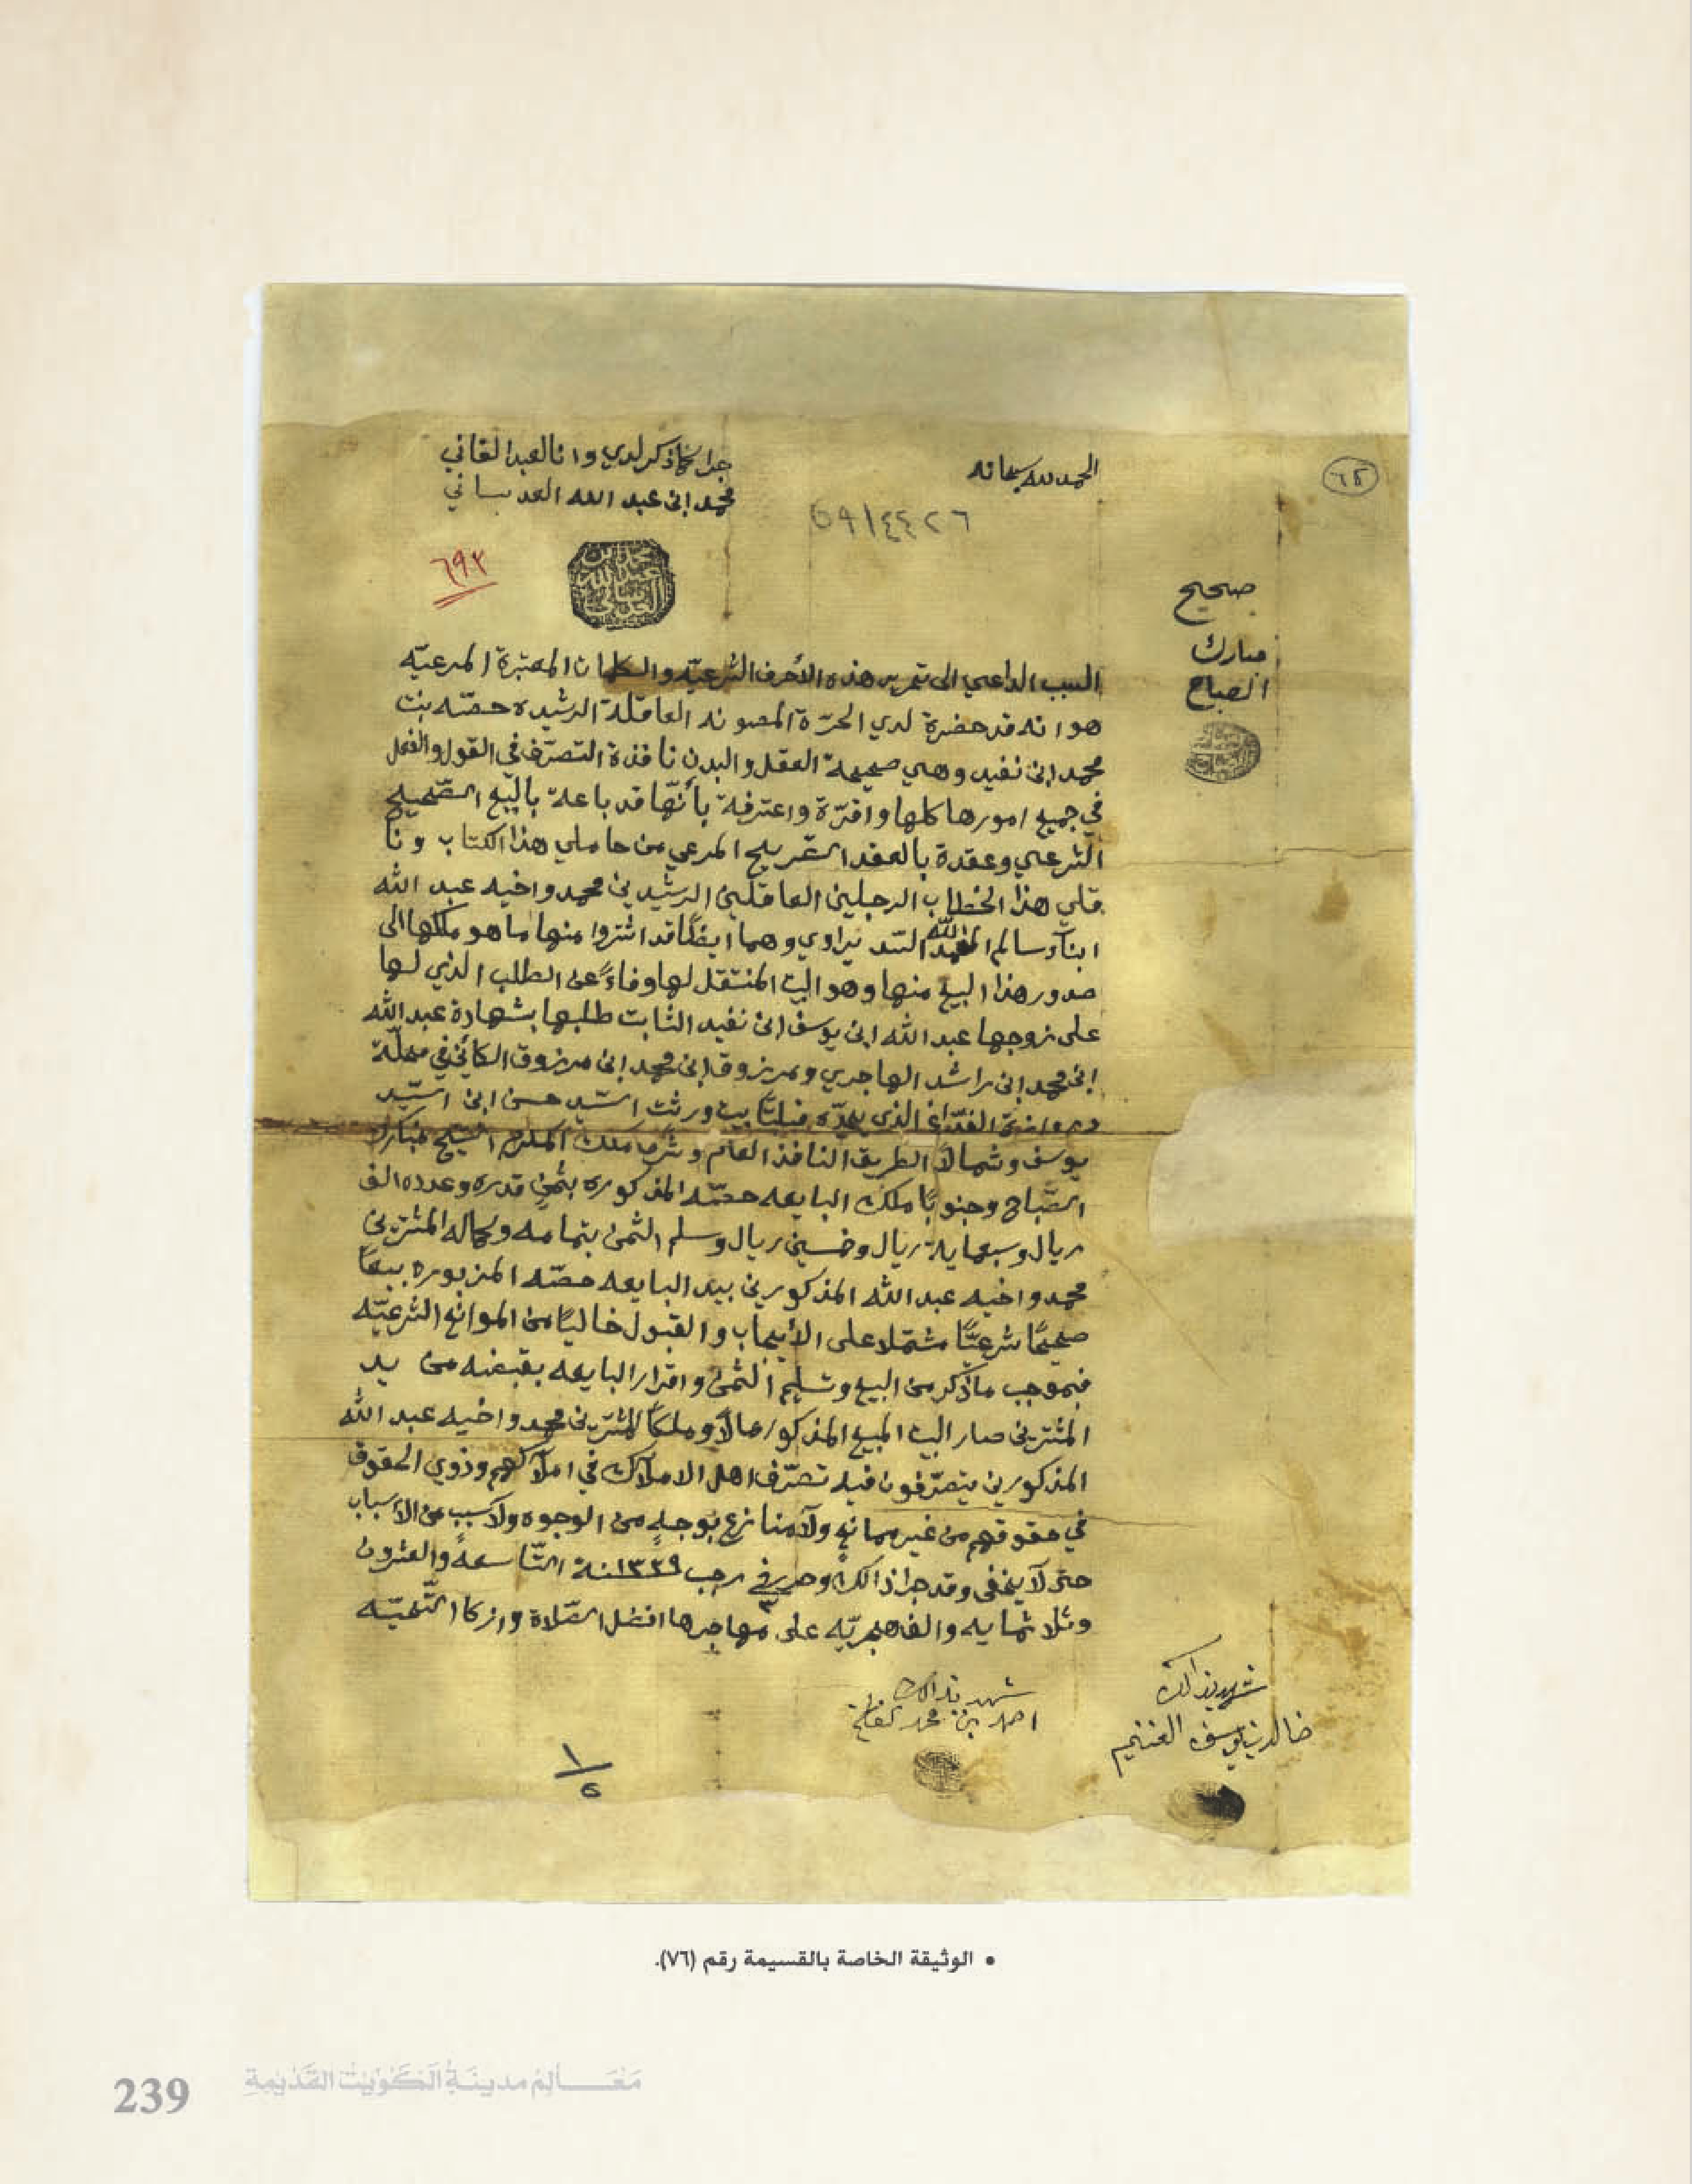 الحمد لله سبحانه
جرا كما ذكر لدي وانا العبد الفاني
محمد ابن عبد الله العدساني
٦٢
٦٩٢
صحيح
مبارك
الصباح
السبب الداعي الى تحرير هذه الأحرف الشرعيّه والكلمات المعتبرة المرعيّه
هو انه قد حضرة لدي الحرّة المصونه العاقلة الرشيده حصّه بنت
محمد ابن نفيد وهي صحيحة العقل والبدن نافذة التصرّف في القول والفعل
في جميع امورها كلها واقرّة واعترفة بأنّها قد باعة بالبيع الصّحيح
الشرعي وعقدة بالعقد الصّريح المرعي من حاملي هذا الكتاب ونا
قلي هذا الخطاب الرجلين العاقلين الرشيدين محمد واخيه عبد الله
ابنآء سالم العبد الله السديراوي وهما ايضًا قد اشتروا منها ما هو ملكها الى
صدور هذا البيع منها وهو البيت المنتقل لها وفاءً عن الطلب الذي لها
على زوجها عبد الله ابن يوسف ابن نفيد الثابت طلبها بشهادة عبد الله
ابن محمد ابن راشد الهاجري ومرزوق ابن محمد ابن مرزوق الكائن في محلّة
الذي يحدّه قبلتًا بيت ورثت السّيد حسن ابن السّيد
يوسف وشمالاً الطريق النافذ العام وشرقا ملك المكرم الشيخ مبارك
الصّباح وجنوبًا ملك البايعه حصّه المذكوره بثمنٍ قدره وعدده الف
ريال وسبعماية ريال وخمسين ريال وسلم الثمن بتمامه وكماله المشترين
محمد واخيه عبد الله المذكورين بيد البايعه حصّه المزبوره بيعًا
صحيحًا شرعيًّا مشتملا على الأيجاب والقبول خاليًا من الموانع الشرعيّه
فبموجب ما ذكر من البيع وتسليم الثمن واقرار البايعه بقبضه من يد
المشترين صار البيت المبيع المذكور مالاً وملكًا للمشترين محمد واخيه عبد الله
المذكورين يتصرّفون فيه تصرّف اهل الاملآك في املآكهم وذوي الحقوق
في حقوقهم من غير ممانع ولآ منازع بوجهٍ من الوجوه ولآ سبب من الأسباب
حتى لآ يخفى وقد جرا ذالك وحرر في ٣ رجب ١٣٢٩ سنة التّاسعة والعشرون
وثلاثمايه والف هجريّه على مهاجرها افضل الصّلاة وازكا التّحيّه
شهد بذالك
خالد بن يوسف الغنيم
شهد بذالك
احمد بن محمد
١
٥
• الوثيقة الخاصة بالقسيمة رقم (٧٦).
239 مَعَالِم مدينَة الكُوَيْت القَديمَةِ